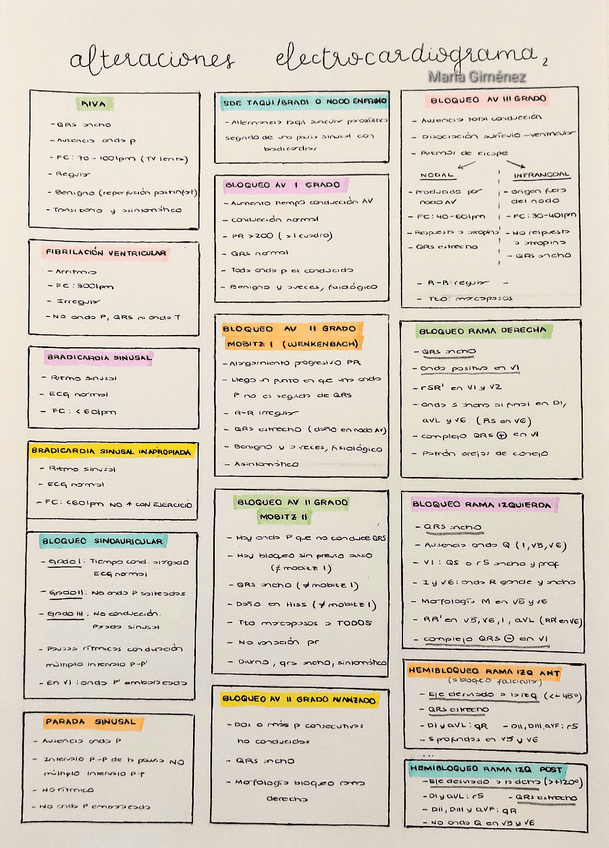 alteraciones electrocardiograma 2
María Giménez
RIVA
- QRS ancho
- Ausencia onda P
- FC: 70-100lpm (TV lenta)
- Regular
- Benigno (reperfusión postinfarto)
- Transitorio y asintomático
FIBRILACIÓN VENTRICULAR
- Arritmia
- FC: 300lpm
- Irregular
- NO onda P, QRS ni onda T
BRADICARDIA SINUSAL
- Ritmo sinusal
- ECG normal
- FC: <60lpm
BRADICARDIA SINUSAL INAPROPIADA
- Ritmo sinusal
- ECG normal
- FC: <60lpm NO ↑ CON EJERCICIO
BLOQUEO SINOAURICULAR
- Grado I: Tiempo cond. alargado
ECG normal
- Grado II: No onda P salteadas
- Grado III: No conducción.
Parada sinusal
- Pausas rítmicas conducción
múltiplo intervalo P-P'
- En V1: onda P' embarcada
PARADA SINUSAL
- Ausencia onda P
- Intervalo P-P de la pausa NO
múltiplo intervalo P-P
- No rítmico
- No onda P embarcada
SDE TAQUI/BRADI O NODO ENFERMO
- Alternancia taqui auricular paroxística
seguida de una pausa sinusal con
bradicardias
BLOQUEO AV I GRADO
- Aumento tiempo conducción AV
- conducción normal
- PR >200 (>1 cuadro)
- QRS normal
- Toda onda P es conducida
- Benigno y a veces, fisiológico
BLOQUEO AV II GRADO
MOBITZ I (WENKENBACH)
- Alargamiento progresivo PR
- Llega un punto en que una onda
P no es seguida de QRS
- R-R irregular
- QRS estrecho (daño en nodo AV)
- Benigno y a veces, fisiológico
- Asintomático
BLOQUEO AV II GRADO
MOBITZ II
- Hay onda P que no conduce QRS
- Hay bloqueo sin previo aviso
(≠ mobitz I)
- QRS ancho (≠ mobitz I)
- Daño en Hiss (≠ mobitz I)
- Tto marcapasos a TODOS
- No variación pr
- Diurno, qrs ancho, sintomático
BLOQUEO AV II GRADO AVANZADO
- Dos o más P consecutivas
no conducidas
- QRS ancho
- Morfología bloqueo rama
derecha
BLOQUEO AV III GRADO
- Ausencia total conducción
- Disociación aurículo-ventricular
- Ritmos de escape
NODAL
- Producida por
nodo AV
- FC: 40-60lpm
- Respuesta a atropina
- QRS estrecho
INFRANODAL
- origen fuera
del nodo
- FC: 30-40lpm
- No respuesta
a atropina
- QRS ancho
- R-R regular
- Tto: marcapasos
BLOQUEO RAMA DERECHA
- QRS ancho
- Onda positiva en V1
- rSR' en V1 y V2
- onda S ancha al final en D1,
aVL y V6 (RS en V6)
- complejo QRS ⊕ en V1
- Patrón orejas de conejo
BLOQUEO RAMA IZQUIERDA
- QRS ancho
- Ausencia onda Q (1, V5, V6)
- V1: QS o rS ancha y prof.
- I y V6: onda R grande y ancha
- Morfología M en V5 y V6
- RR' en V5, V6, 1, aVL (RR' en V6)
- complejo QRS ⊖ en V1
HEMIBLOQUEO RAMA IZQ ANT
(bloqueo fascicular)
- Eje desviado a la izq (<-45º)
- QRS estrecho
- D1 y aVL: qR - DII, DIII, aVF: rS
- S profundas en V5 y V6
HEMIBLOQUEO RAMA IZQ POST
- Eje desviado a la dcha (>+120º)
- D1 y aVL: rS - QRS estrecho
- DII, DIII y aVF: qR
- No onda Q en V5 y V6